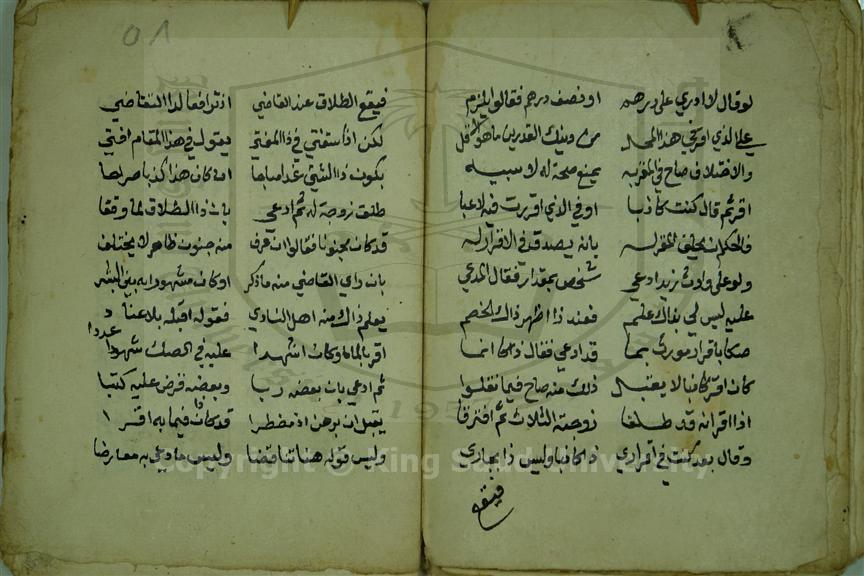 لو قال لا ادري علي درهم او نصف درهم فقالوا يلزم
علي الذي اقر في هذا المحل من القدرين ما هو الاقل
والاختلاف صاح في المقر به يمنع صحة له لا سببه
اقر ثم قال كنت كاذبا او في الذي اقررت فيه لاعبا
فالحكم ان يحلف المقر له بانه يصدق في الاقرار له
ولو علي وارث زيد ادعي شخص بمقدار فقال المدعي
عليه ليس لي بذاك علم فعند ذا اظهر ذاك الخصم
صكا باقرار مورث بما قد ادعي فقال ذا كا انما
كان اقر كاذبا لا يقبل ذلك منه صاح فيما نقلوا
اذا اقر انه قد طلقا زوجته الثلاث ثم افترقا
وقال بعد كنت في اقراري ذا كاذبا وليس ذا بجاري
فيقع
٥٨
فيقع الطلاق عند القاضي اذ ترافعا لدا القاضي
لكن اذا ستفتي في ذا المفتي يقول في هذا المقام افتي
بكون ذا الشئ غدا مباحا ان كان هذا كذبا صراحا
طلق زوجة له ثم ادعي بان ذا الطلاق لما وقعا
قد كان مجنونا فقالوا ان عرف منه جنون ظاهر لا يختلف
بان راي القاضي منه ما ذكر او كان مشهودا به بين البشر
يعلم ذاك منه اهل النادي فقوله اقبله بلا عناد
اقر بالمال وكان اشهدا عليه في الصك شهودا عددا
ثم ادعي بان بعضه ربا وبعضه قرض عليه كتبا
يقبل ان برهن اذ مضطرا قد كان ذا فيما به اقرا
وليس قوله هنا تناقضا وليس ما دعي به معارضا
Copyright © King Saud University
1957